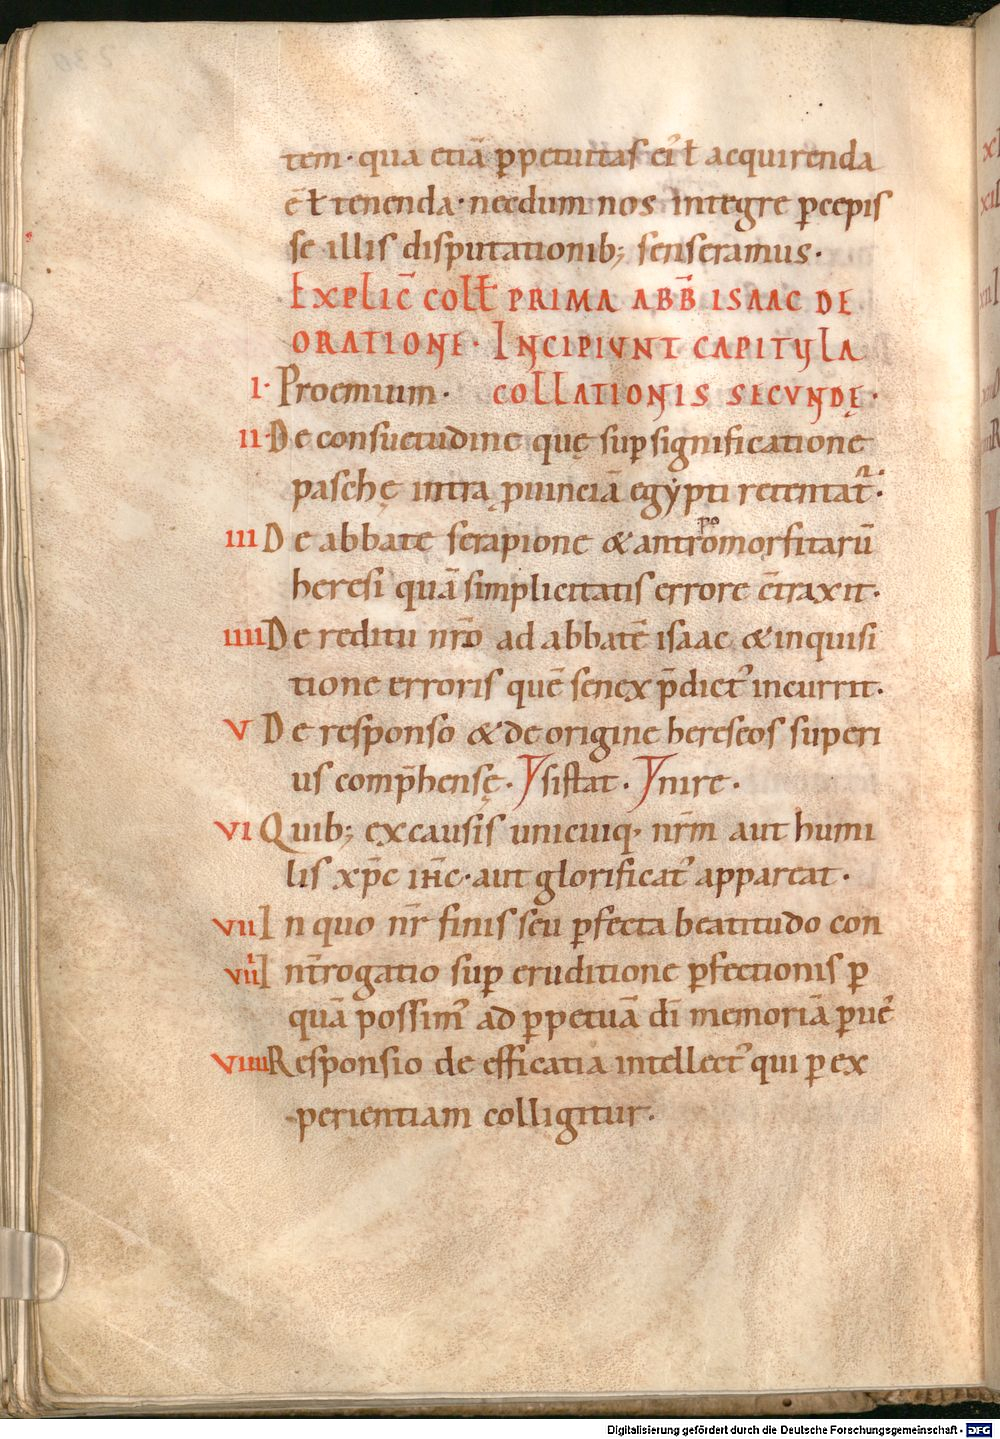 tem· qua etiã ꝑpetuitas eiꝰ ƚ acquirenda
ẽ ƚ tenenda· necdum nos integre ꝑcepis
se illis disputationib; senseramus·
Explic̄ coll̄ PRIMA ABB̄ ISAAC DE
ORATIONE· INCIPIVNT CAPITULA
I· Proemium· COLLATIONIS SECVNDĘ·
II· De consuetudine quę suꝑ significatione
paschę intra ꝓuinciã egẏpti retentat᷑·
III De abbate serapione & antropomorfitarũ
heresi quã simplicitatis errore c̄traxit·
IIII De reditu nr̄o ad abbatẽ isaac & inquisi
tione erroris quẽ senex p̄dictꝰ incurrit·
V De responso & de origine hereseos superi
us comp̄hensę· sistat· nire·
VI Quib; ex causis unicuiq· nr̄m aut humi
lis xp̄c ih̄c· aut glorificatꝰ appareat·
VII In quo nr̄ finis seu ꝑfecta beatitudo con
VIII Int̄rogatio suꝑ eruditione ꝑfectionis ꝑ
quã possimꝰ ad ꝑpetuã dī memoriã ꝑueꝰ
VIIII Responsio de efficatia intellectꝰ qui ꝑ ex
perientiam colligitur·
Digitalisierung gefördert durch die Deutsche Forschungsgemeinschaft - DFG